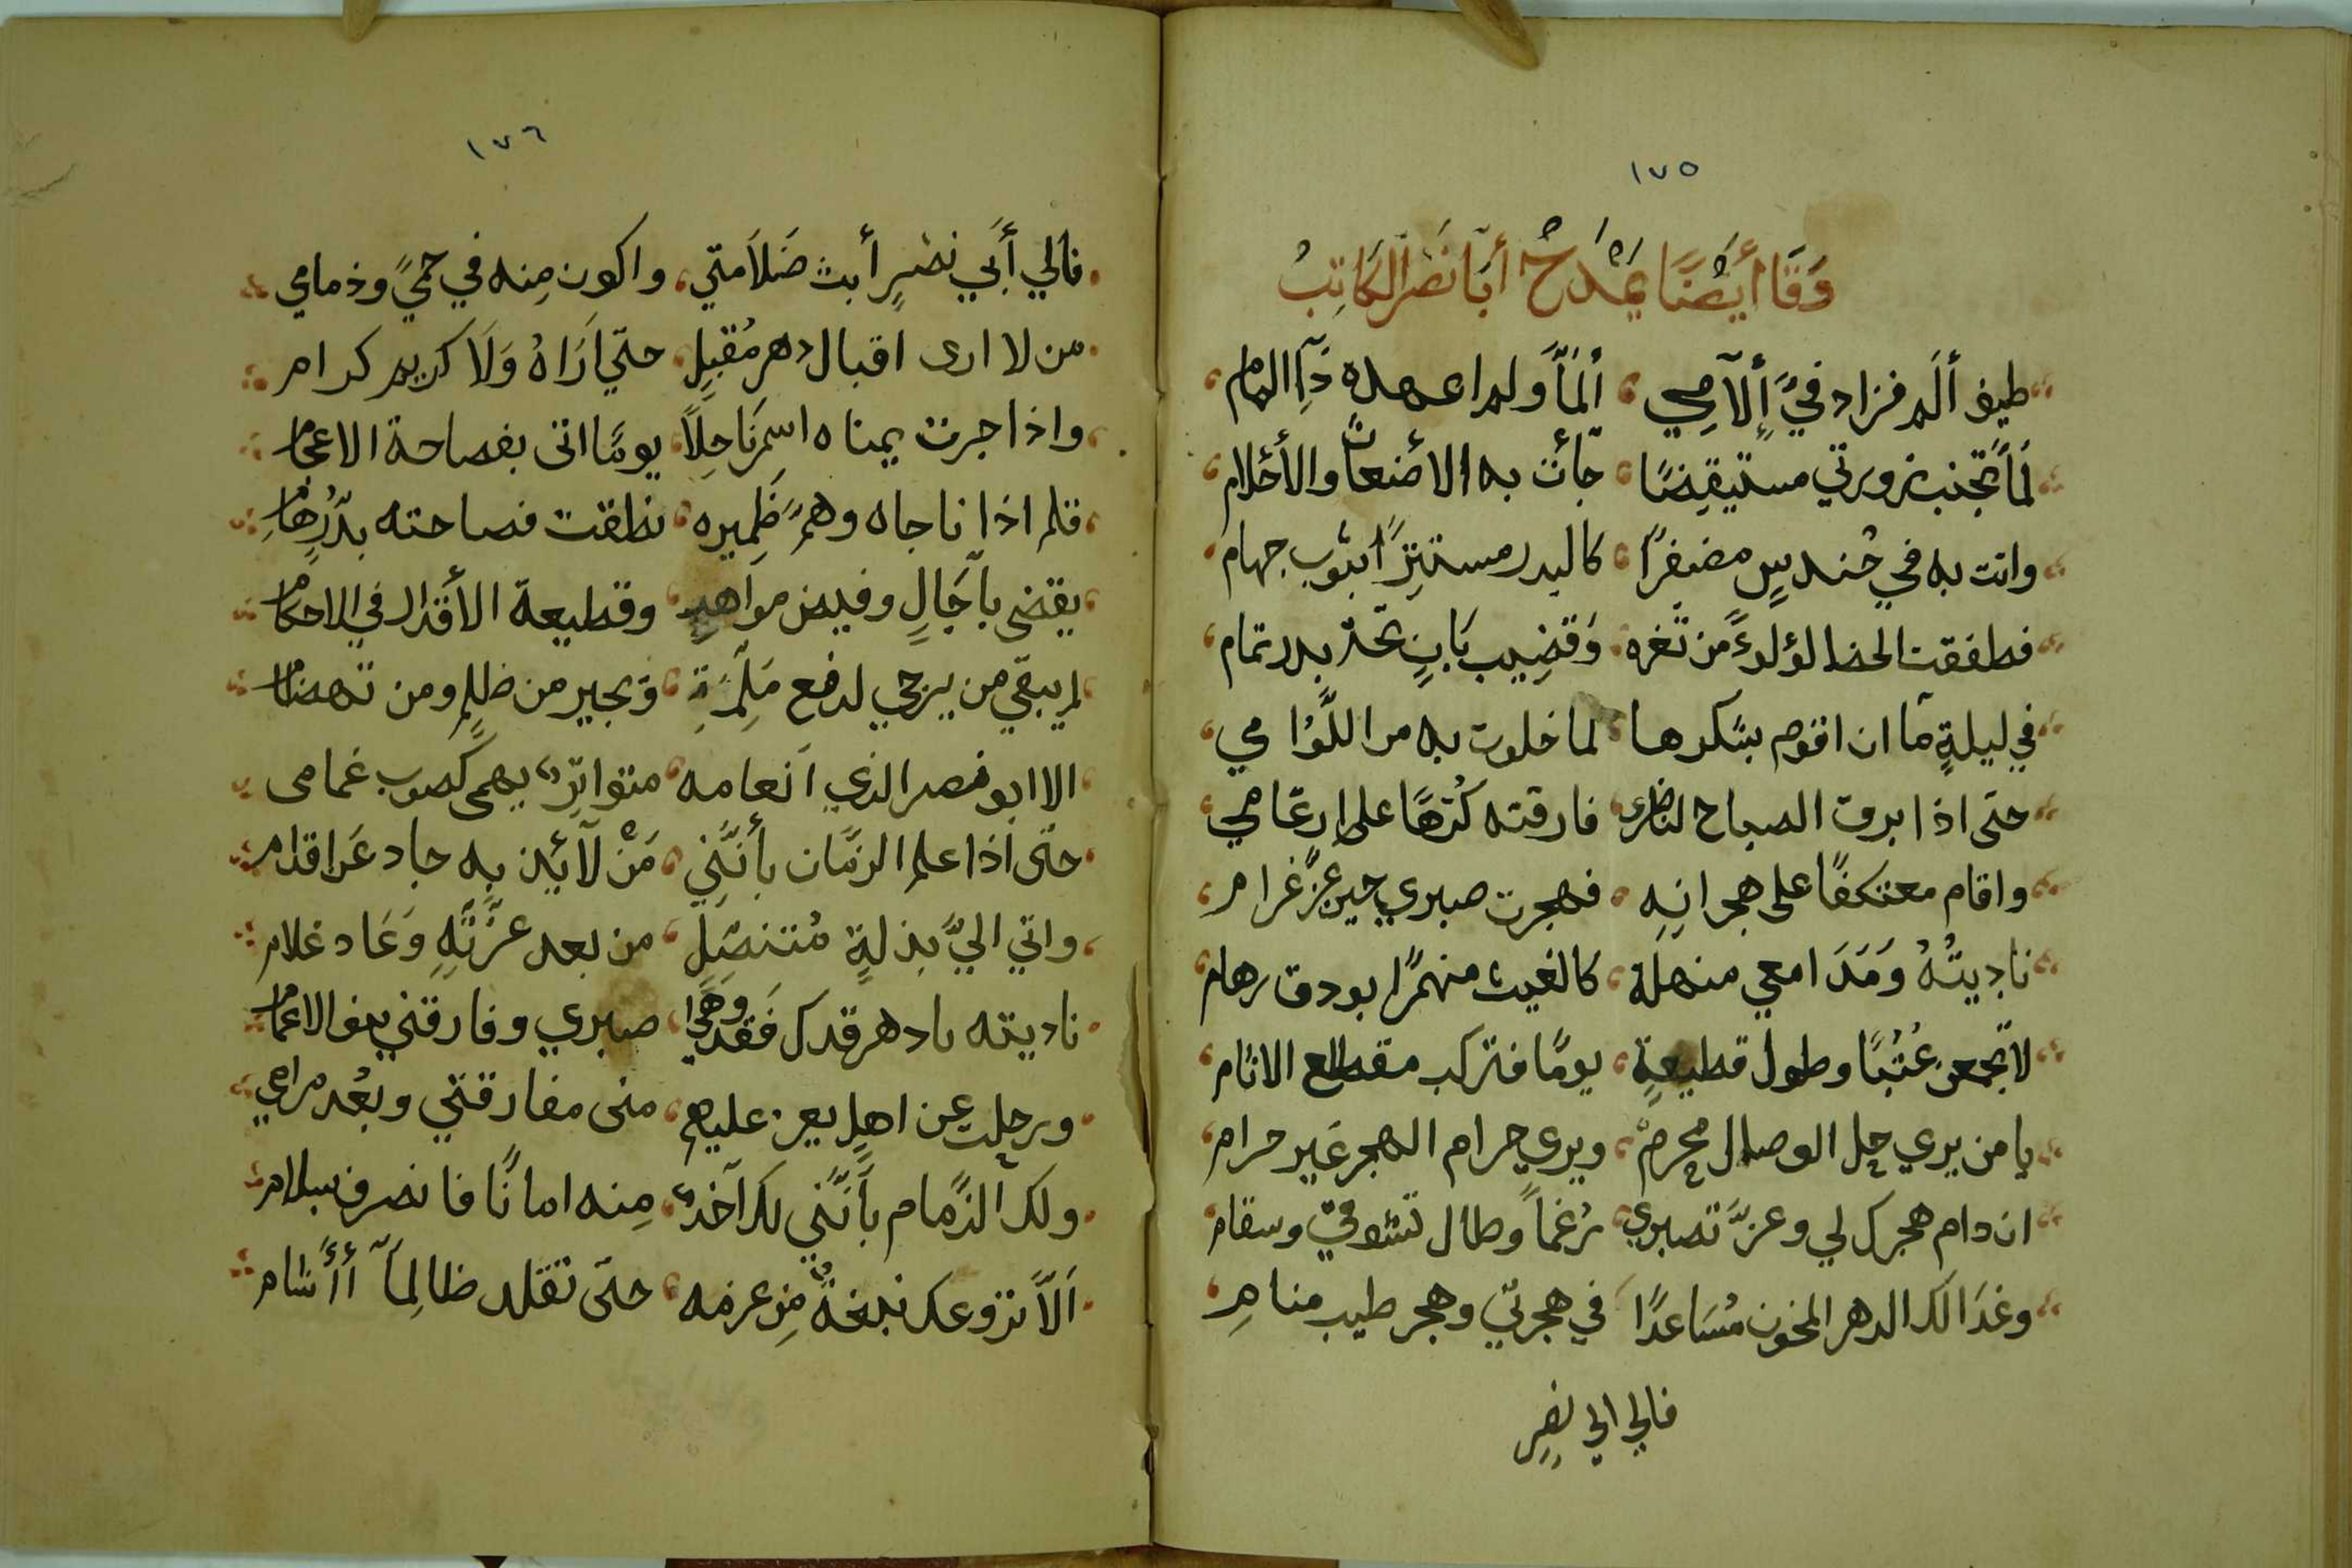 ١٧٥
وَقَا أيضًا يمدَحُ أبَا نَصْر الكَاتِبُ
طيف ألَم فزاد فيَّ إلآمِي ألمَاً ولم اعهده ذَا المام
لمَا تجنب زورتي مستيقضًا جَأت به الاضغاثُ والأحلام
واتت به في حُندسٍ مضفرًا كالبدر مستترًا بثوب جهام
فطفقت الحضا لؤلؤءً من ثغره وَقضِيب بَانٍ تحت بدر تمام
في ليلةٍ مَا ان اقوم بشكرها لما خلوت به من اللَّوُامي
حتى اذا برق الصباح لناظري فارقته كُرْهًا على ارغامي
واقام معتكفًا على هجرانِهِ فهجرت صبري حين عزَّ غرام
ناديتُهُ وَمَدَامعي منهلة كالغيث منهمرًا بودق رهام
لا تجمعن عُتْبًا وطول قطيعةٍ يومًا فتركب مقطع الاثام
يا من يري حِل الوصال محرمٌ ويري حرام الهجر غَير حرام
ان دام هجرك لي وعزَّ تصبري رُغماً وطال تشوقي وسقام
وغدَا لك الدهر الخون مُسَاعدًا في هجرتي وهجر طيب منامِ
فالي ابي نصرٍ
١٧٦
فالي أَبي نصرٍ أبث ضَلاَمتي واكون مِنه في حمىً وذمامي
من لا ارى اقبال دهر مُقبِل حتي ارَاهُ وَلَا كريم كرام
واذا جرت يمناه اسمرَ ناحِلاً يومًا اتى بفصاحة الاعجام
قلم اذا ناجاه وهمُ ضَمِيره نطقت فصاحته بدُرِّ نظام
يقضى بآجَالٍ وفيض مواهبٍ وقطيعة الأقدار في الاحكام
لم يبقي من يرجي لدفع مَلِمَّةِ وَيجير من ظلمٍ ومن تهضام
الا ابو نصر الذي انعامه متواترٌ يهمى كصوب غمامى
حتى اذا علم الزمَّان بأنَّنِي مَنْ لآئيذ بِه حاد عَن اقدام
واتي اليَّ بذلةٍ مُتنصِّلِ من بعد عزَّتِهِ وَعَاد غلام
ناديته يا دهر قدك فَقد وَهَي صبري وفارقني بعض الاعمام
ورحلت عن اهلٍ يعز عليهم منى مفارقتي وبعُد مرامي
ولك الذمام بأَنَّني لك آخذٌ مِنه امانًا فانصرف بسلام
اَلّا تزوعك نبغةٌ مِن عزمه حتى تقلد ظالِماً أأشام